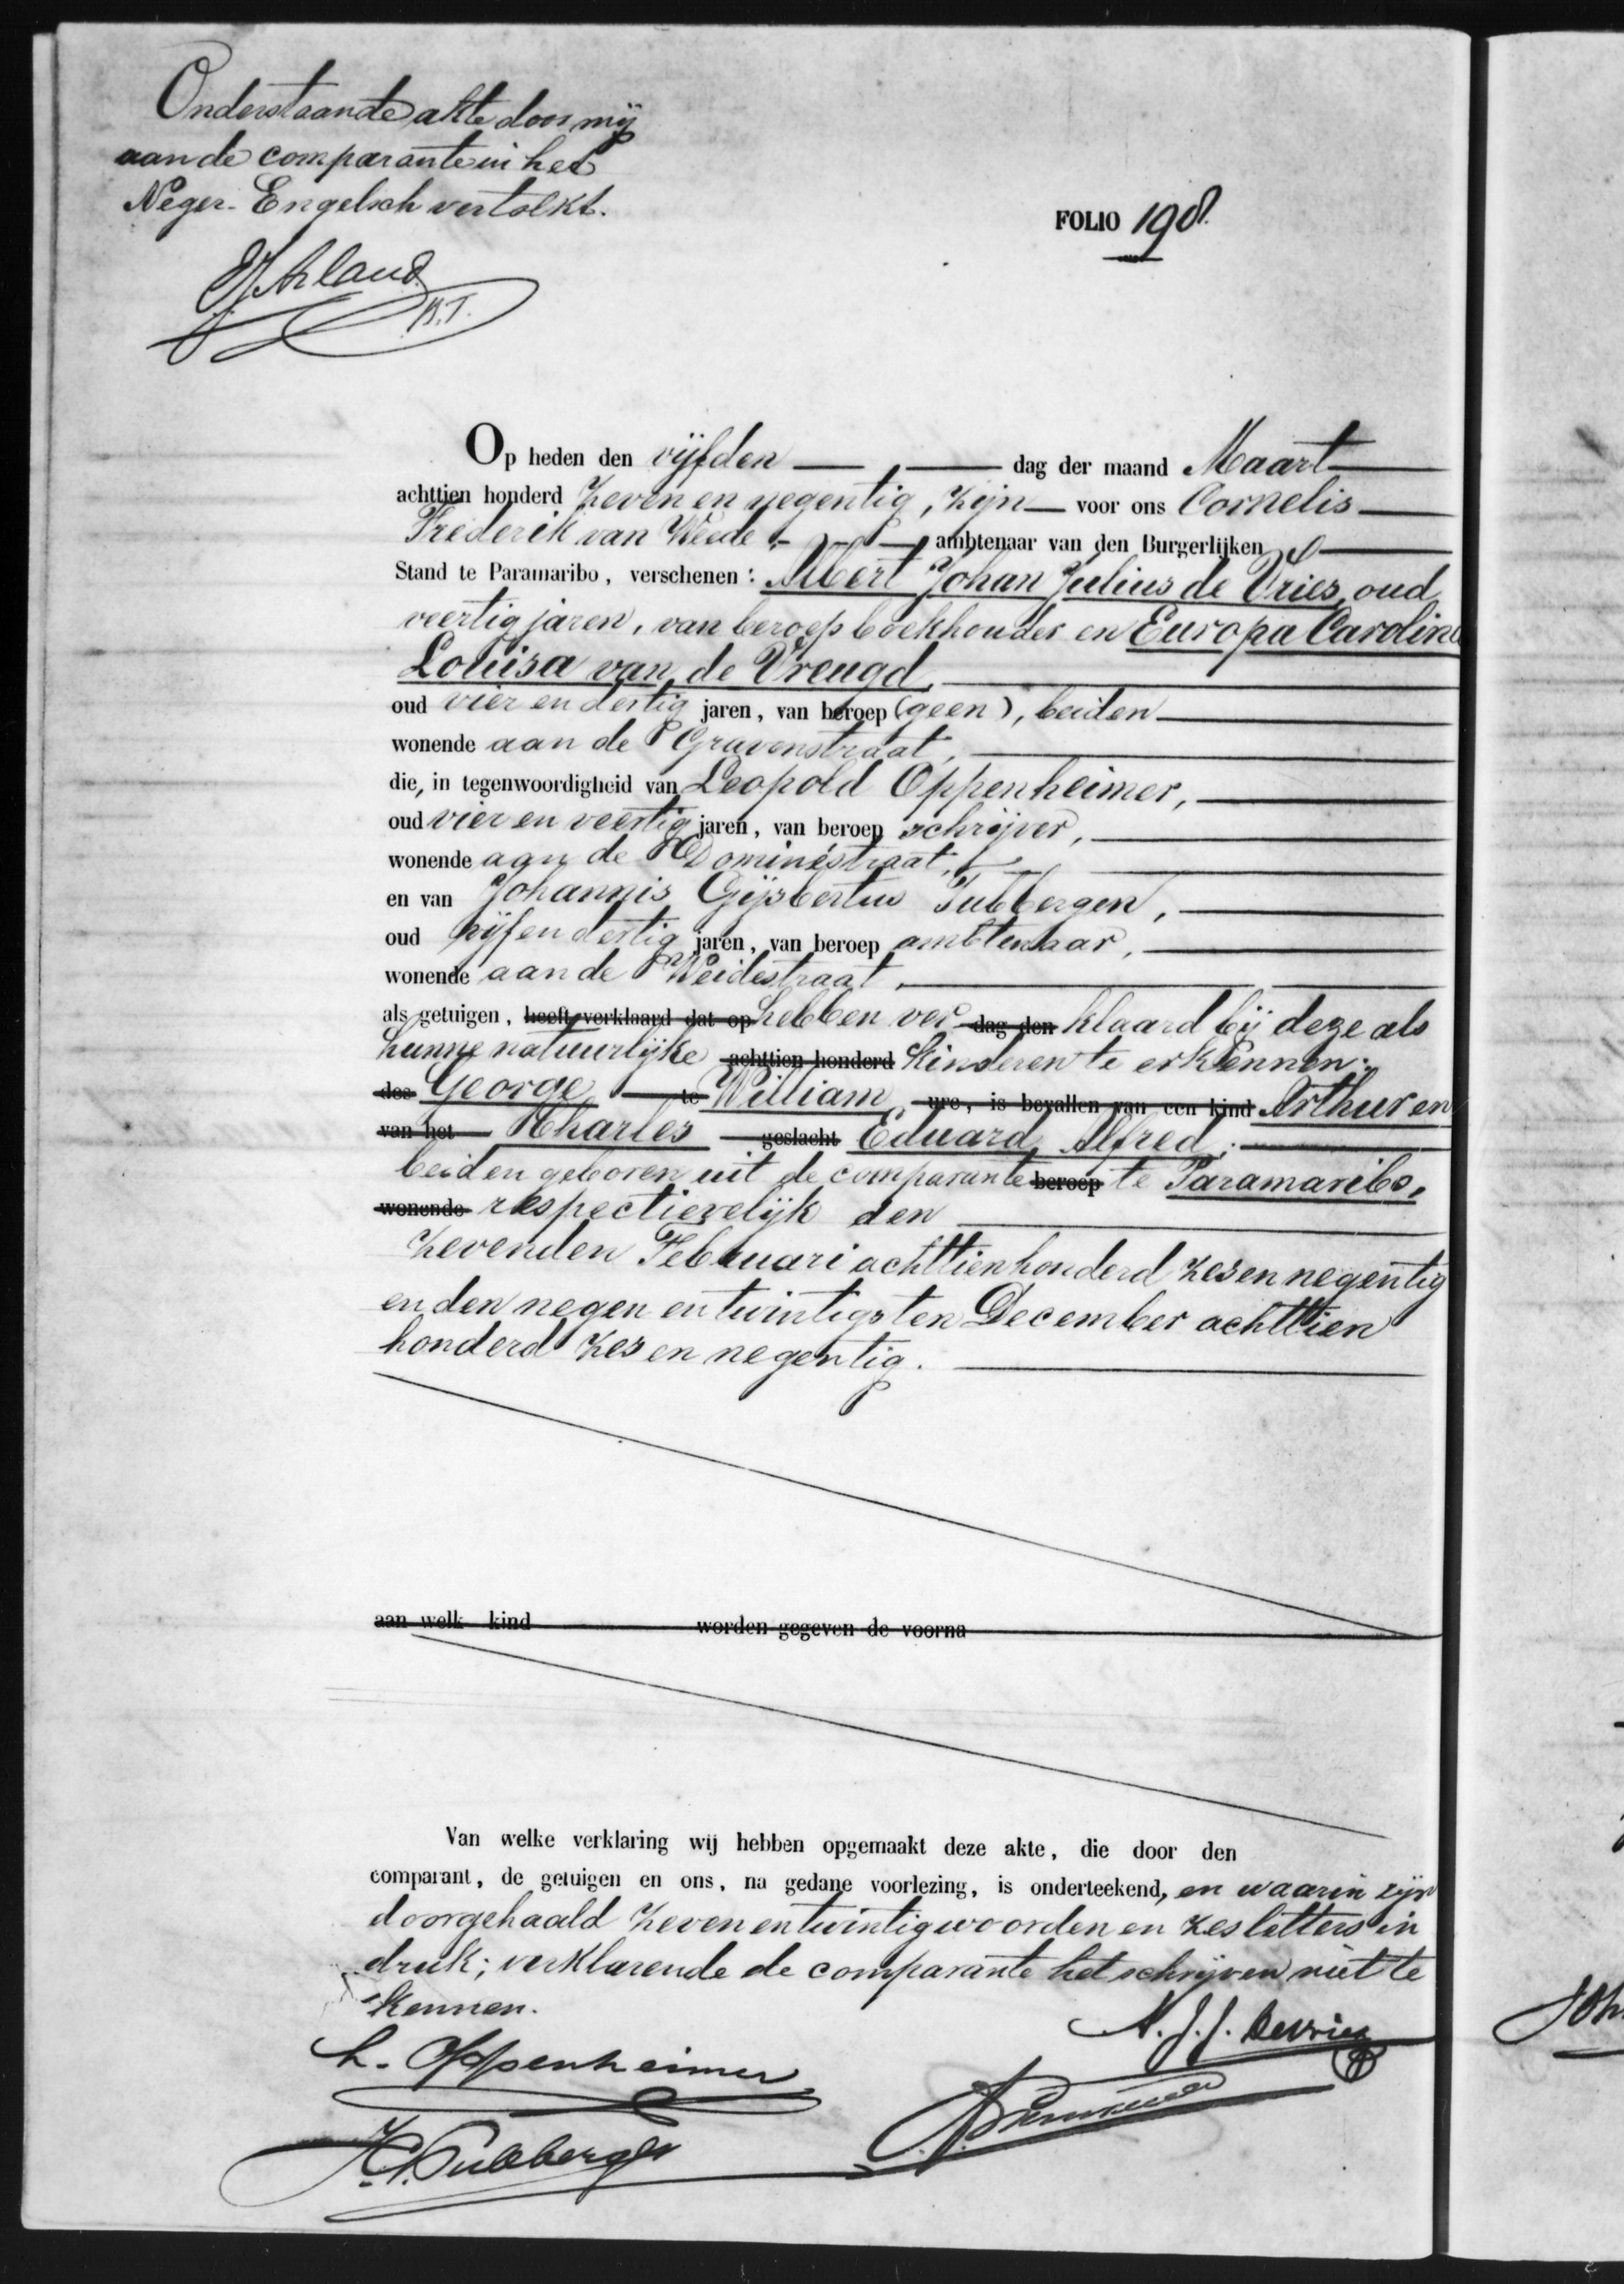 Onderstaande akte door mij
aan de comparante in het
Neger-Engelsch vertolkt.
B.T.
FOLIO 198.
Op heden den vijfden dag der maand Maart
achttien honderd Zeven en negentig, zijn voor ons Cornelis
Frederik van Weede, ambtenaar van den Burgerlijken
Stand te Paramaribo, verschenen: Albert Johan Julius de Vries, oud
veertig jaren, van beroep boekhouder en Europa Carolina
Louisa van de Vreugd,
oud vier en dertig jaren, van beroep (geen), beiden
wonende aan de Gravenstraat,
die, in tegenwoordigheid van Leopold Oppenheimer,
oud vier en veertig jaren, van beroep schrijver,
wonende aan de Dominéstraat,
en van Johannis Gijsbertus Tubbergen,
oud vijf en dertig jaren, van beroep ambtenaar,
wonende aan de Weidestraat,
als getuigen, heeft verklaard dat op hebben ver dag den klaard bij deze als
hunne natuurlijke achttien honderd kinderen te erkennen:
des George te William ure, is bevallen van een kind Arthur en
van het Charles geslacht Eduard Alfred;
beiden geboren uit de comparante beroep te Paramaribo,
wonende respectievelijk den
zevenden Februari achttienhonderd zes en negentig
en den negen en twintigsten December achttien
honderd zes en negentig.
aan welk kind worden gegeven de voorna
Van welke verklaring wij hebben opgemaakt deze akte, die door den
comparant, de getuigen en ons, na gedane voorlezing, is onderteekend, en waarin zijn
doorgehaald zeven en twintig woorden en zes letters in
druk; verklarende de comparante het schrijven niet te
kennen.
A. J. J. de Vries
L. Oppenheimer
Tubbergen